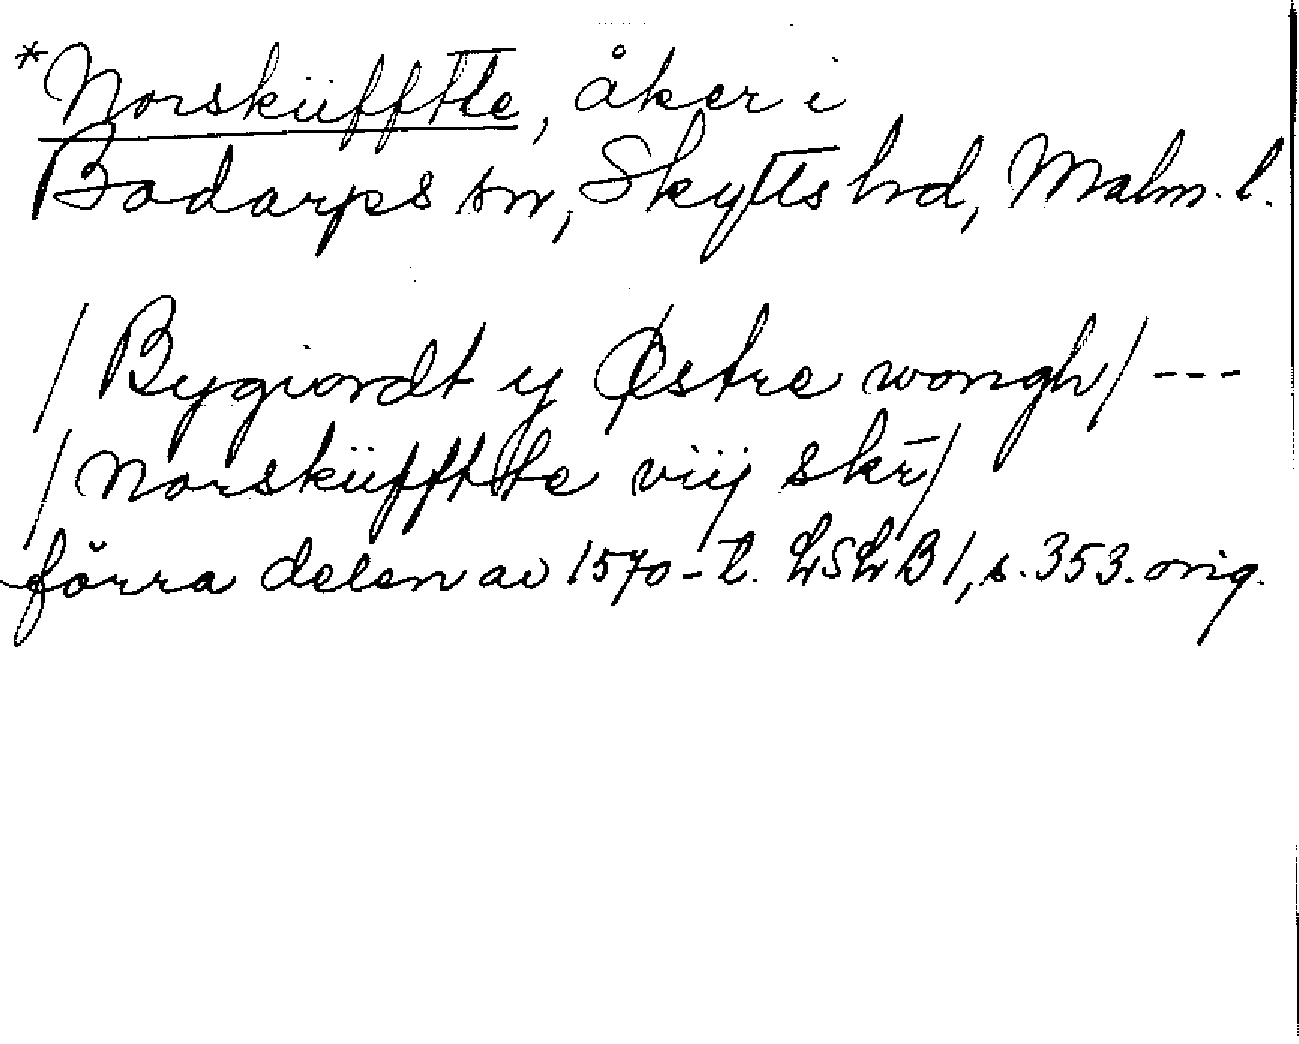 *Norsküfftte, åker i
Bodarps sn, Skytts hd, Malm. l.
/Bygiordt y Østre wongh/ ---
/Norsküfftte viij skr̄/
förra delen av 1570-t. LSLB 1, s. 353. orig.